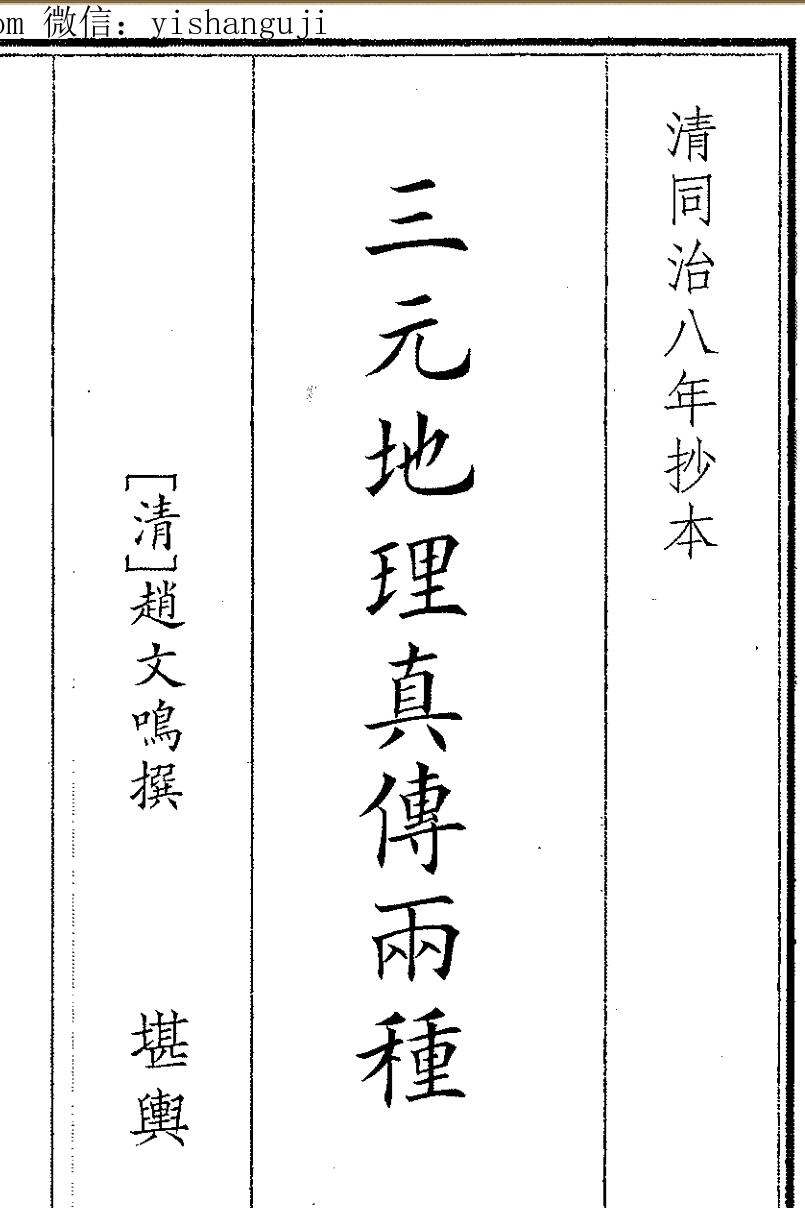 om 微信：yishanguji
清同治八年抄本
三元地理真傳兩種
［清］趙文鳴撰
堪輿